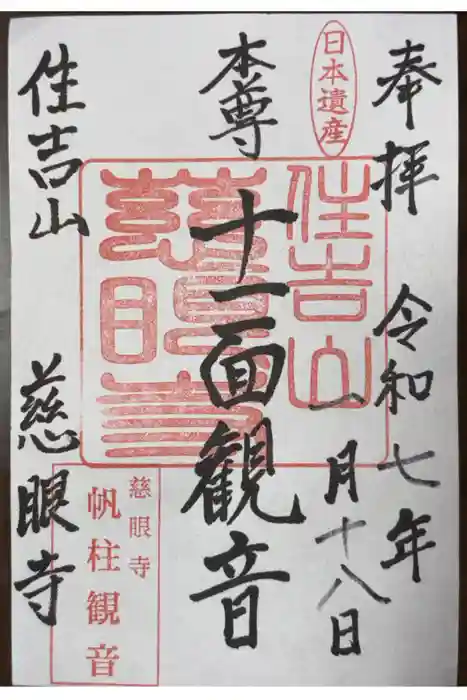 奉拝 令和七年
一月十八日
日本遺産
本尊 十一面観音
住吉山
慈眼寺
住吉山 慈眼寺
慈眼寺
帆柱観音